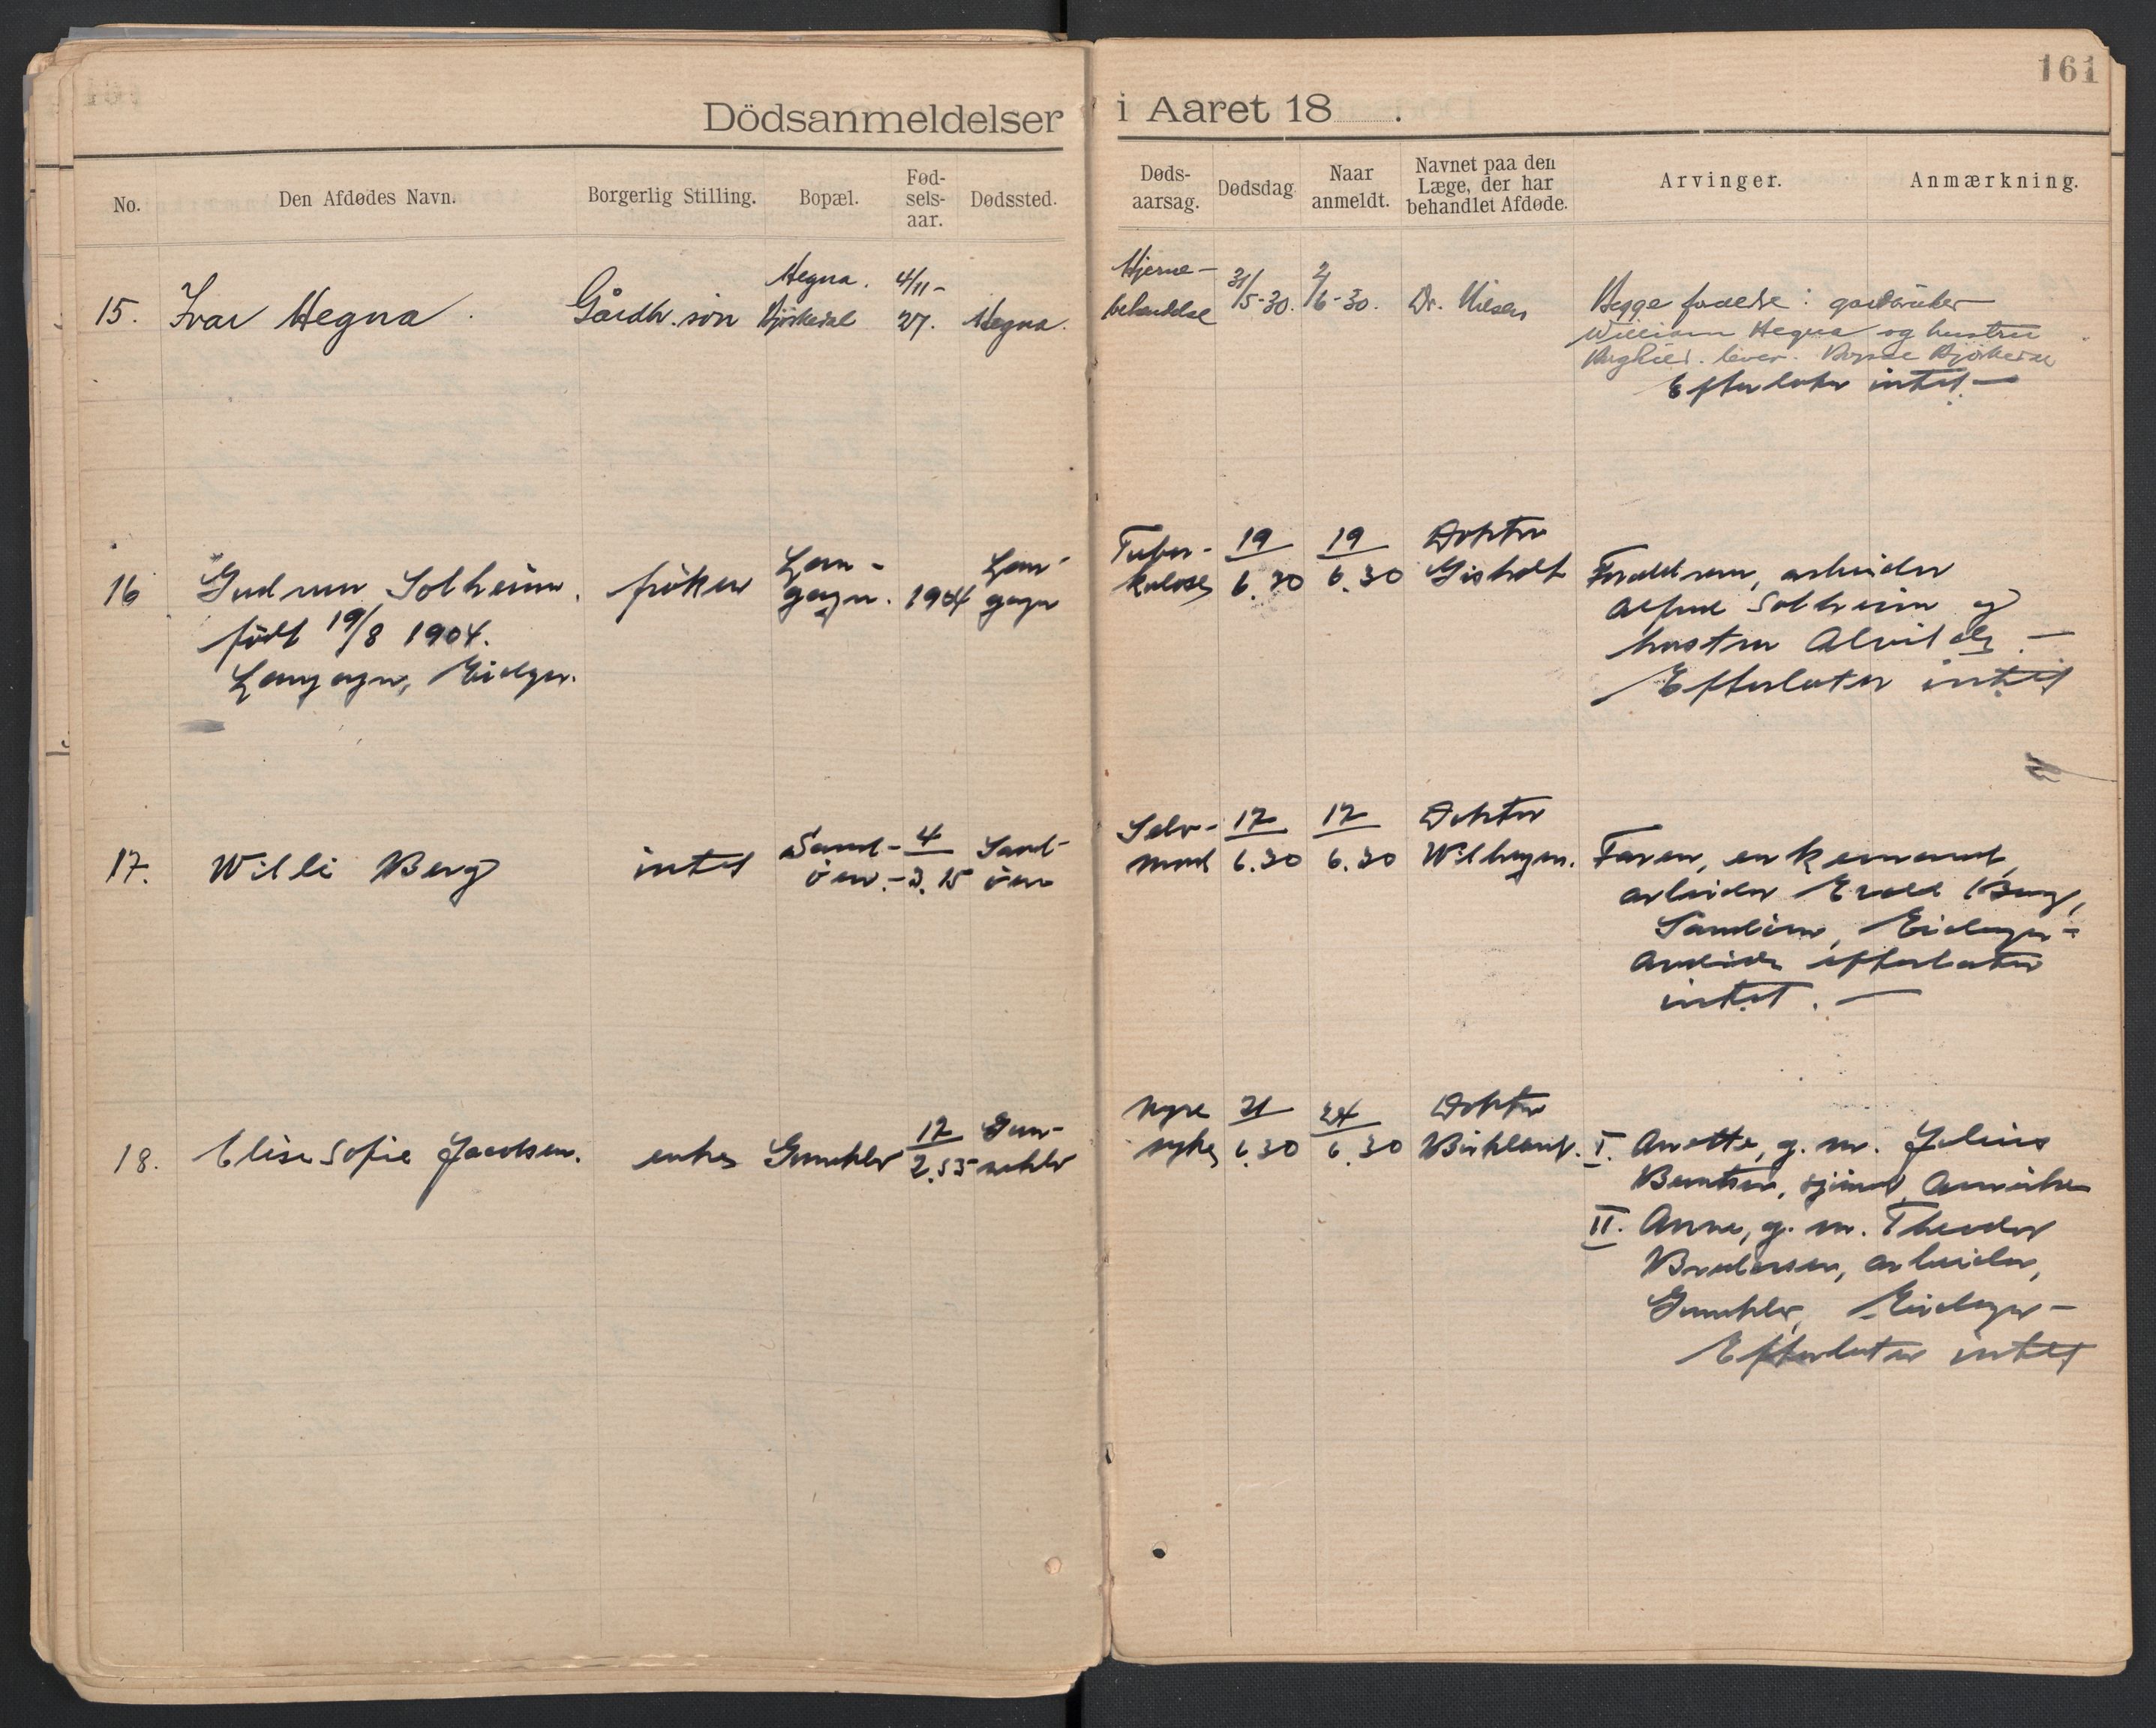 161
Dödsanmeldelser i Aaret 18 .
No. Den Afdødes Navn. Borgerlig Stilling. Bopæl. Fød-sels-aar. Dødssted. Døds-aarsag. Dødsdag. Naar anmeldt. Navnet paa den Læge, der har behandlet Afdøde. Arvinger. Anmærkning.
15. Ivar Hegna. Gårdbr. sön Hegna. Bjørkedal 4/11-27. Hegna. Hjerne-betændelse 31/5-30. 2/6-30. Dr. Nilsen
Begge foreldre: gardbruker
William Hegna og hustru
lever.
Efterlater intet. —
16 Gudrun Solheim. fröken Lan-gagn. 1904 Lan-gagn Tuber-kulose 19/6.30 19/6.30 Doktor Gisholt
født 19/8 1904.
Langagn, Eidgn.
Foreldrene, arbeider
Alfred Solheim og
hustru Alvilde. —
Efterlater intet
17. Willi Berg intet Sand-öen. 4/3.15 Sand-öen Selv-mord 17/6.30 17/6.30 Doktor
Faren, enkemand,
arbeider Berg,
Sandöen, Eidanger-
Avdöde efterlater
intet. —
18. Elise Sofie Jacobsen. enke Gunnklev 17/2.55 Gun-nklev Nyre syke 21/6.30 24/6.30 Doktor Birkland.
I. Anette, g. m. Julius
Berntsen, sjömand, Amerika
II. Anna, g. m. Theodor
arbeider,
Gunnklev, Eidanger —
Efterlater intet